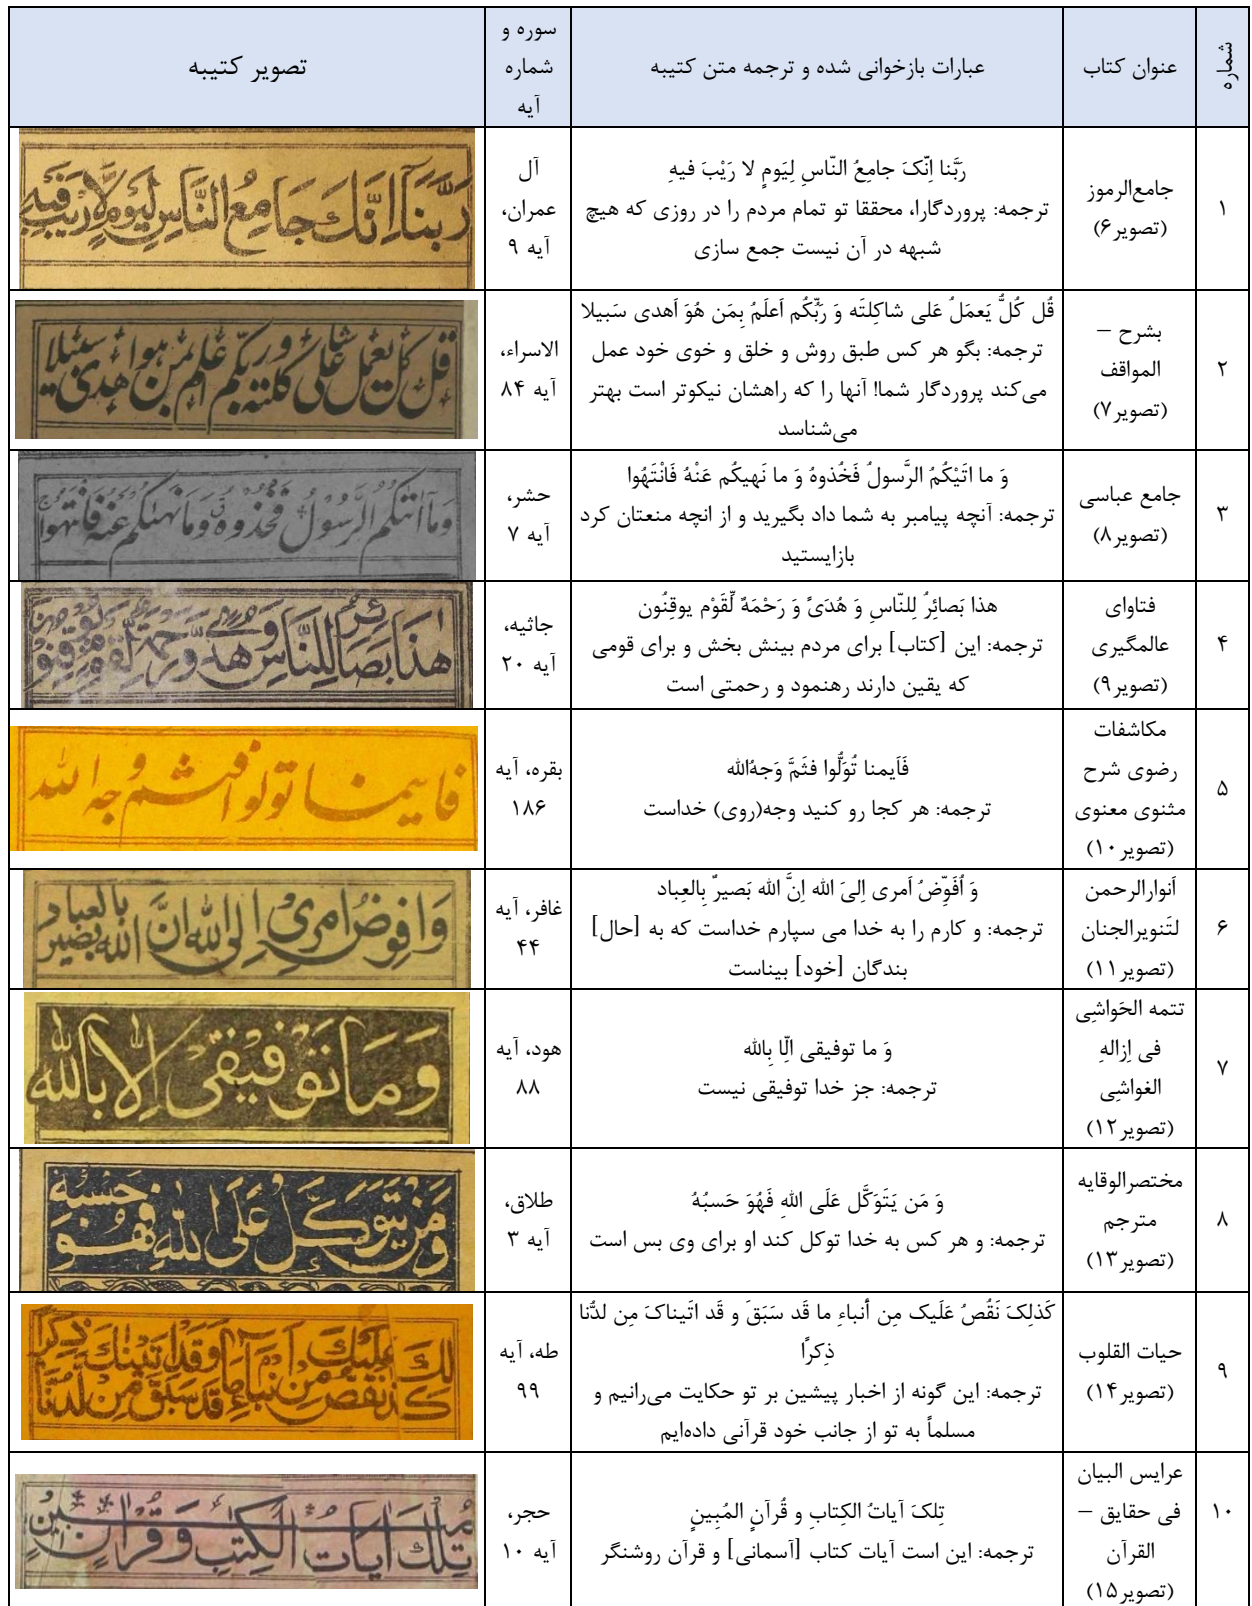 شماره
عنوان کتاب
عبارات بازخوانی شده و ترجمه متن کتیبه
سوره و
شماره
آیه
تصویر کتیبه
۱
جامع‌الرموز
(تصویر۶)
رَبَّنا اِنّکَ جامِعُ النّاسِ لِیَومٍ لا رَیْبَ فیهِ
ترجمه: پروردگارا، محققا تو تمام مردم را در روزی که هیچ
شبهه در آن نیست جمع سازی
آل
عمران،
آیه ۹
رَبَّنَآ اِنَّكَ جَامِعُ النَّاسِ لِيَوْمٍ لَّا رَيْبَ فِيهِ
۲
بشرح –
المواقف
(تصویر۷)
قُل کُلُّ یَعمَلُ عَلی شاکِلتَه وَ رَبِّکُم اَعلَمُ بِمَن هُوَ اَهدی سَبیلا
ترجمه: بگو هر کس طبق روش و خلق و خوی خود عمل
می‌کند پروردگار شما! آنها را که راهشان نیکوتر است بهتر
می‌شناسد
الاسراء،
آیه ۸۴
قل كل يعمل على شاكلته وربكم اعلم بمن هو اهدى سبيلا
۳
جامع عباسی
(تصویر۸)
وَ ما اتَیْکُمُ الرَّسولُ فَخُذوهُ وَ ما نَهیکُم عَنْهُ فَانْتَهُوا
ترجمه: آنچه پیامبر به شما داد بگیرید و از انچه منعتان کرد
بازایستید
حشر،
آیه ۷
وَمَآ اٰتٰكُمُ الرَّسُوْلُ فَخُذُوْهُ وَمَا نَهٰكُمْ عَنْهُ فَانْتَهُوْا
۴
فتاوای
عالمگیری
(تصویر۹)
هذا بَصائِرُ لِلنّاسِ وَ هُدَیً وَ رَحْمَهٌ لِّقَوْم یوقِنُون
ترجمه: این [کتاب] برای مردم بینش بخش و برای قومی
که یقین دارند رهنمود و رحمتی است
جاثیه،
آیه ۲۰
هٰذَا بَصَائِرُ لِلنَّاسِ وَهُدًى وَّرَحْمَةٌ لِّقَوْمٍ يُّوْقِنُوْنَ
۵
مکاشفات
رضوی شرح
مثنوی معنوی
(تصویر۱۰)
فَاَیمنا تُوَلُّوا فثَمَّ وَجهُ‌الله
ترجمه: هر کجا رو کنید وجه(روی) خداست
بقره، آیه
۱۸۶
فاينما تولوا فثم وجه الله
۶
اَنوارالرحمن
لتَنویرالجنان
(تصویر۱۱)
وَ اُفَوِّضُ اَمری اِلیَ الله اِنَّ الله بَصیرٌ بِالعِباد
ترجمه: و کارم را به خدا می سپارم خداست که به [حال]
بندگان [خود] بیناست
غافر، آیه
۴۴
وَافوِضُ امرِيْ اِلى اللهِ اِنَّ الله بَصِير بالعباد
۷
تتمه الحَواشِی
فی اِزالهِ
الغواشِی
(تصویر۱۲)
وَ ما توفیقی الّا بِالله
ترجمه: جز خدا توفیقی نیست
هود، آیه
۸۸
وَمَا تَوْفِيْقِيْ اِلَّا بِاللّٰهِ
۸
مختصرالوقایه
مترجم
(تصویر۱۳)
وَ مَن یَتَوَکَّل عَلَی اللهِ فَهُوَ حَسبُهُ
ترجمه: و هر کس به خدا توکل کند او برای وی بس است
طلاق،
آیه ۳
وَمَنْ يَتَوَكَّلْ عَلَى اللهِ فَهُوَ حَسْبُهُ
۹
حیات القلوب
(تصویر۱۴)
کَذلِکَ نَقُصُ عَلَیک مِن أنباءِ ما قَد سَبَقَ و قَد اتَیناکَ مِن لدُّنا
ذِکرًا
ترجمه: این گونه از اخبار پیشین بر تو حکایت می‌رانیم و
مسلماً به تو از جانب خود قرآنی داده‌ایم
طه، آیه
۹۹
كَذٰلِكَ نَقُصُّ عَلَيْكَ مِنْ اَنْبَآءِ مَا قَدْ سَبَقَ وَقَدْ اٰتَيْنٰكَ مِنْ لَّدُنَّا ذِكْرًا
۱۰
عرایس البیان
فی حقایق –
القرآن
(تصویر۱۵)
تِلکَ آیاتُ الکِتابِ و قُرآنٍ المُبِینٍ
ترجمه: این است آیات کتاب [آسمانی] و قرآن روشنگر
حجر،
آیه ۱۰
تِلْكَ اٰيَاتُ الْكِتٰبِ وَقُرْاٰنٍ مُّبِيْنٍ